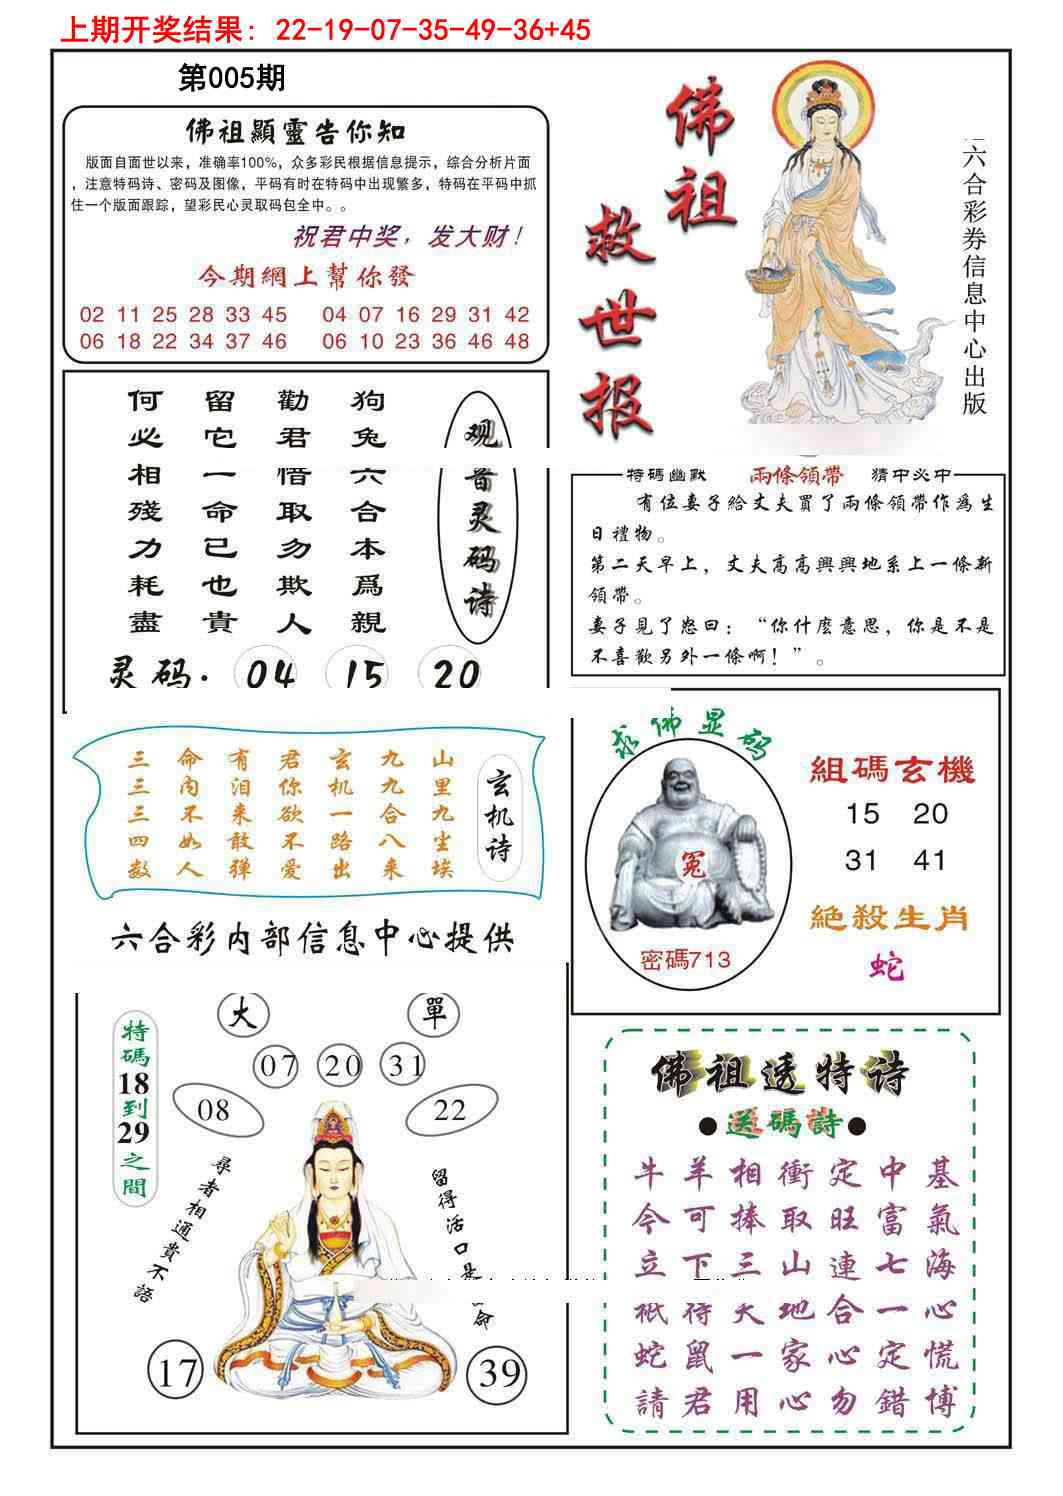 上期开奖结果：22-19-07-35-49-36+45
第005期
佛祖顯靈告你知
版面自面世以来，准确率100%，众多彩民根据信息提示，综合分析片面
，注意特码诗、密码及图像，平码有时在特码中出现繁多，特码在平码中抓
住一个版面跟踪，望彩民心灵取码包全中。。
祝君中奖，发大财！
今期網上幫你發
02 11 25 28 33 45 04 07 16 29 31 42
06 18 22 34 37 46 06 10 23 36 46 48
佛祖
救世报
六合彩券信息中心出版
观音灵码诗
狗兔六合本爲親
勸君惜取勿欺人
留它一命已也貴
何必相殘力耗盡
灵码·04 15 20
特碼幽默 兩條領帶 猜中必中
有位妻子給丈夫買了兩條領帶作爲生
日禮物。
第二天早上，丈夫高高興興地系上一條新
領帶。
妻子見了怒曰：“你什麽意思，你是不是
不喜歡另外一條啊！”。
玄机诗
山里九尘埃
九九合八来
玄机一路出
君你欲不爱
有泪来敢弹
命内不如人
三三三四数
六合彩内部信息中心提供
求佛显码
冤
密碼713
組碼玄機
15 20
31 41
絕殺生肖
蛇
特碼18到29之間
大 單
07 20 31
08 22
尋者相通貴不語
留得活口是命
17 39
佛祖透特诗
●送碼詩●
牛羊相衝定中基
今可捧取旺富氣
立下三山連七海
祇待天地合一心
蛇鼠一家心定慌
請君用心勿錯博